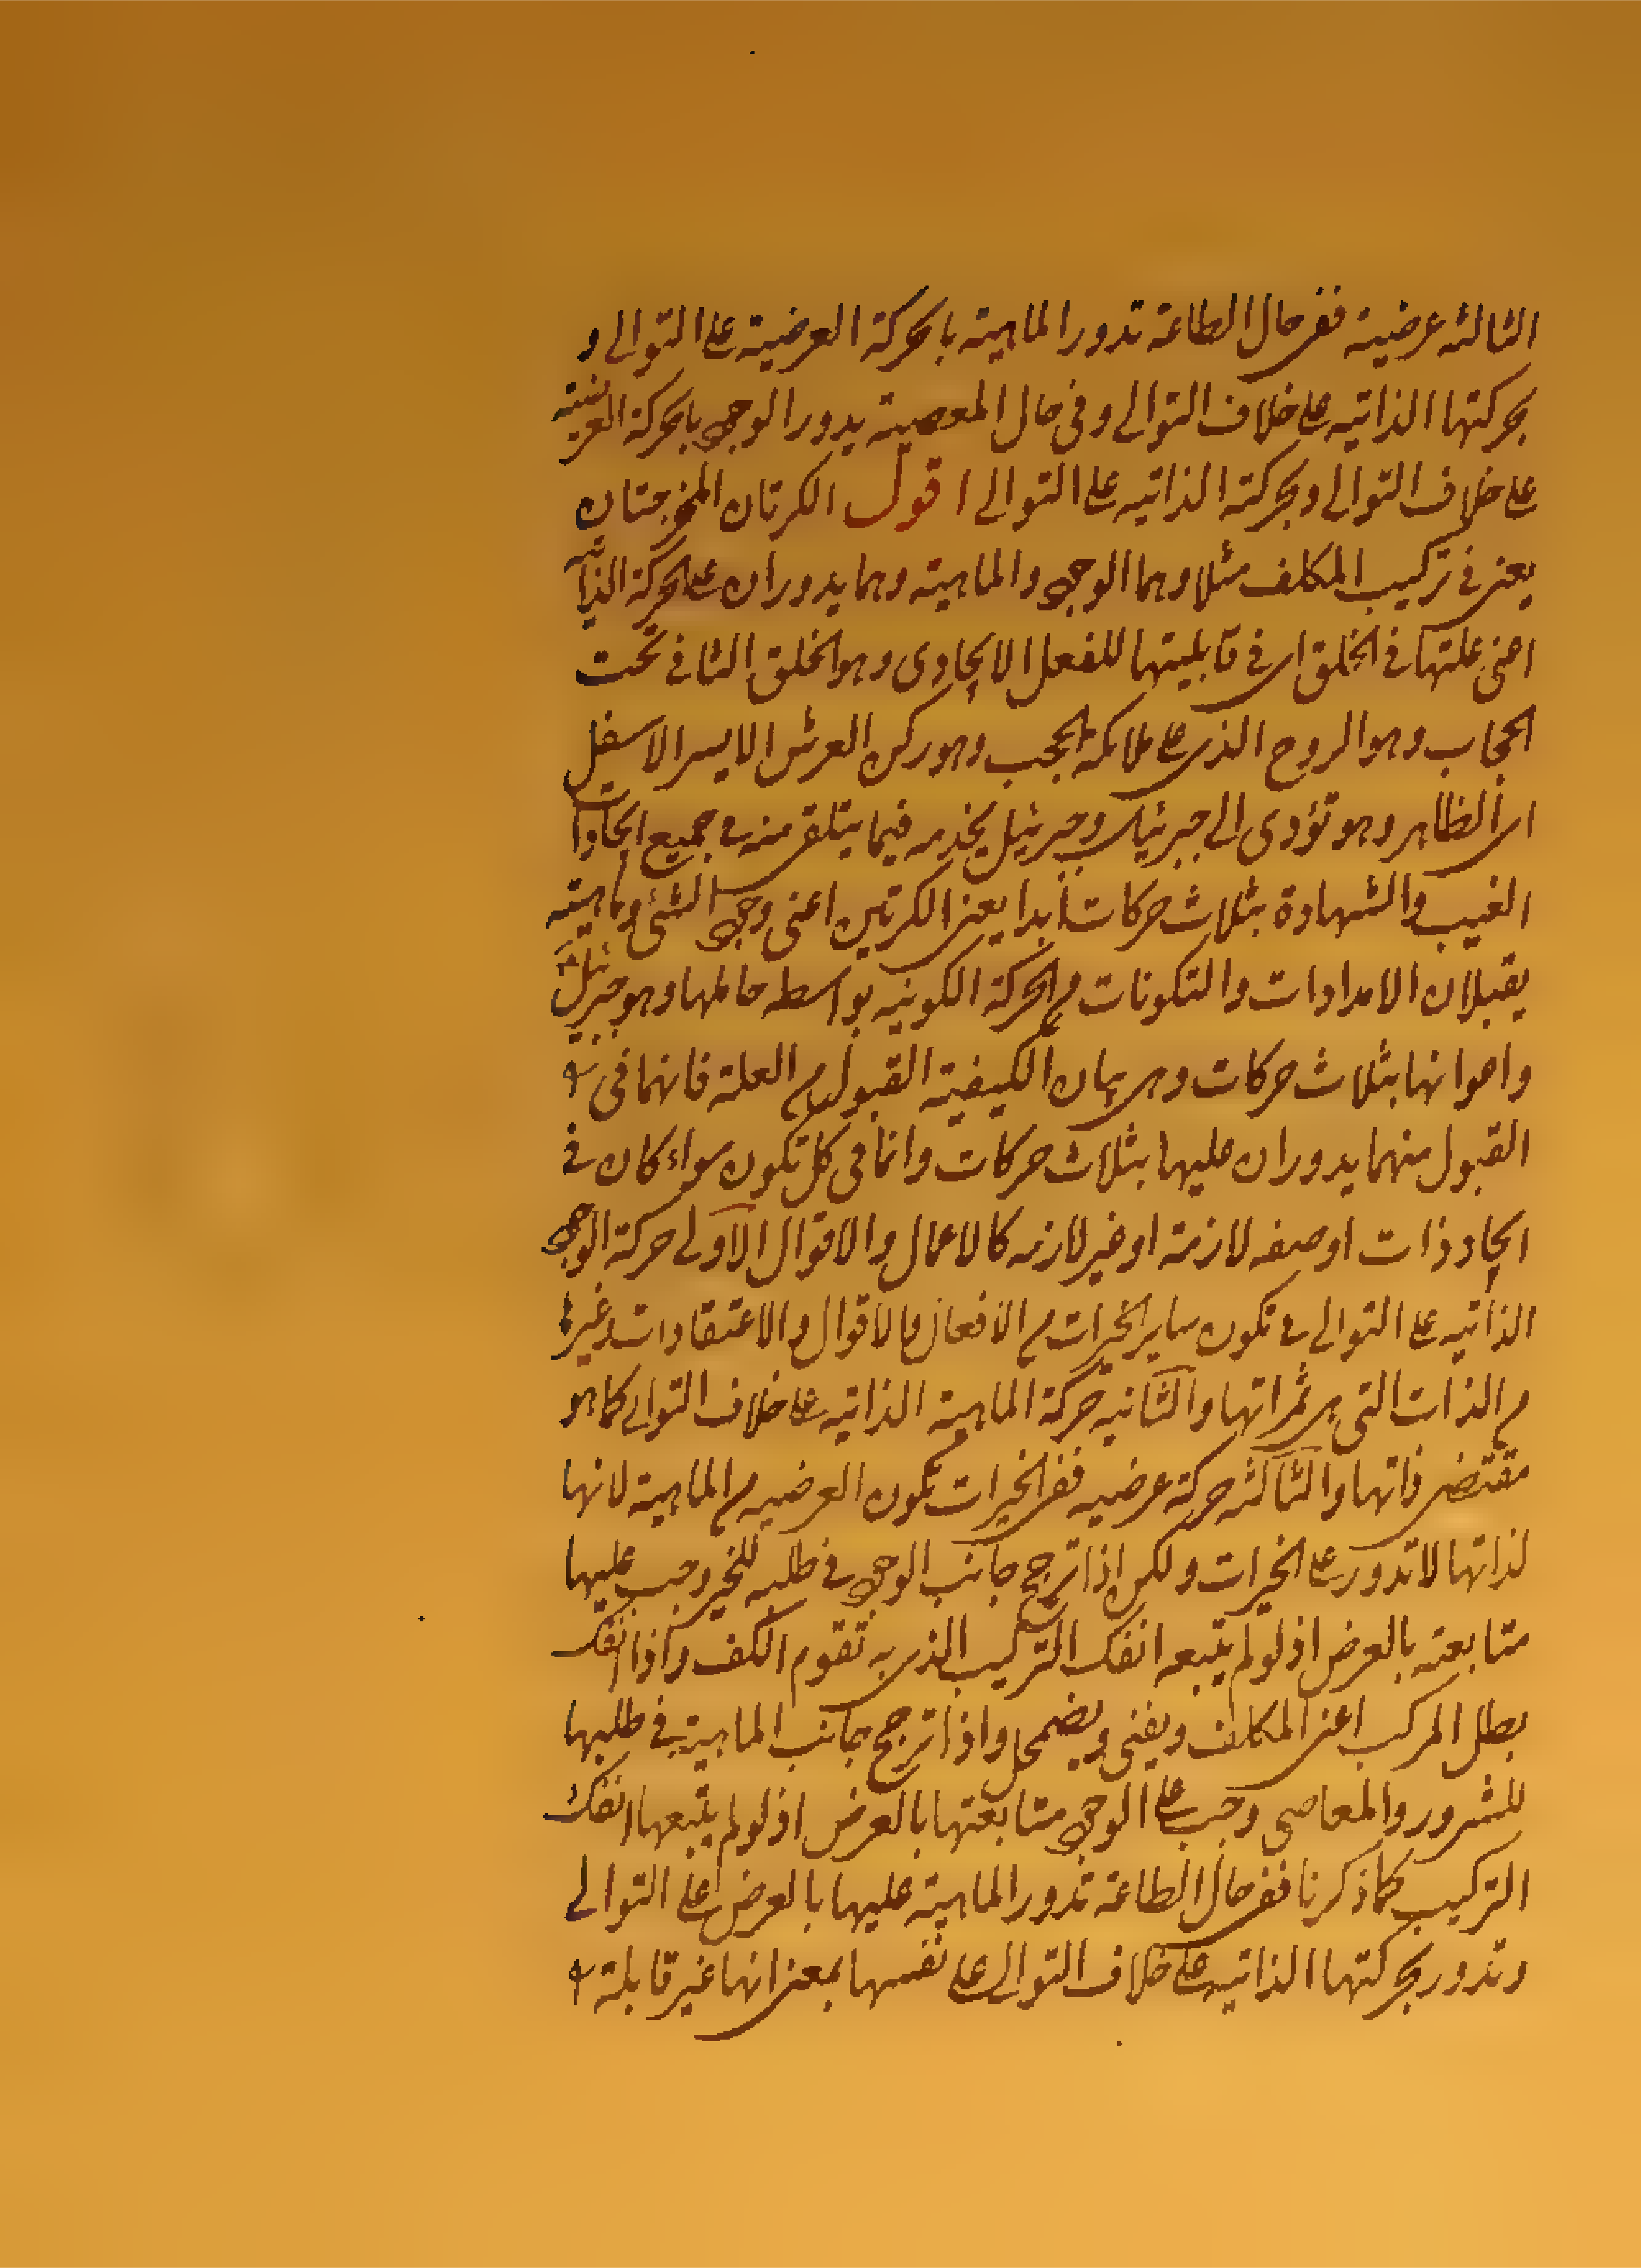 الثالثه عرضية ففى حال الطاعة تدور الماهية بالحركة العرضية على التوالى و
بحركتها الذاتيه على خلاف التوالى وفى حال المعصية يدور الوجود بالحركة العرضية
على خلاف التوالى وبحركته الذاتيه على التوالى اقول الكرتان الممزوجتان
يعنى فى تركيب المكلف مثلا وهما الوجود والماهية وهما يدوران على الحركة الذاتية
اعنى علتها فى الخلق اى فى قابليتها للفعل الايجادى وهو الخلق الثانى تحت
الحجاب وهو الروح الذى على ملائكة الحجب وهو ركن العرش الايسر الاسفل
اى الظاهر وهو تؤدى الى جبرئيل وجبرئيل يخدمه فيما يتلقى منه فى جميع ايجادات
الغيب والشهادة بثلاث حركات ابدا يعنى الكرتين اعنى وجود الشئ وماهيته
يقبلان الامدادات والتكونات من الحركة الكونيه بواسطه حاملها وهو جبرئيل
واعوانها بثلاث حركات وهى بيان الكيفية القبول من العلة فانهما فى
القبول منهما يدوران عليها بثلاث حركات وانما فى كل تكون سواء كان فى
ايجاد ذات او صفه لازمة او غير لازمه كالاعمال والاقوال الاولى حركة الوجود
الذاتيه على التوالى فى تكون ساير الخيرات من الافعال والاقوال والاعتقادات وغيرها
من الذات التى هى ثمراتها والثانيه حركة الماهية الذاتيه على خلاف التوالى كما هو
مقتضى ذاتها والثالثه حركة عرضيه ففى الخيرات تكون العرضيه من الماهية لانها
لذاتها لا تدور على الخيرات ولكن اذا ترجح جانب الوجود فى طلبه للخير وجب عليها
متابعته بالعرض اذ لو لم يتبعه انفك التركيب الذى به تقوم المكلف واذا انفك
بطل المركب اعنى المكلف ويفنى ويضمحل واذا ترجح جانب الماهية فى طلبها
للشرور والمعاصى وجب على الوجود متابعتها بالعرض اذ لو لم يتبعها انفك
التركيب كما ذكرنا ففى حال الطاعة تدور الماهية عليها بالعرض على التوالى
وتدور بحركتها الذاتيه على خلاف التوالى على نفسها بمعنى انها غير قابلة